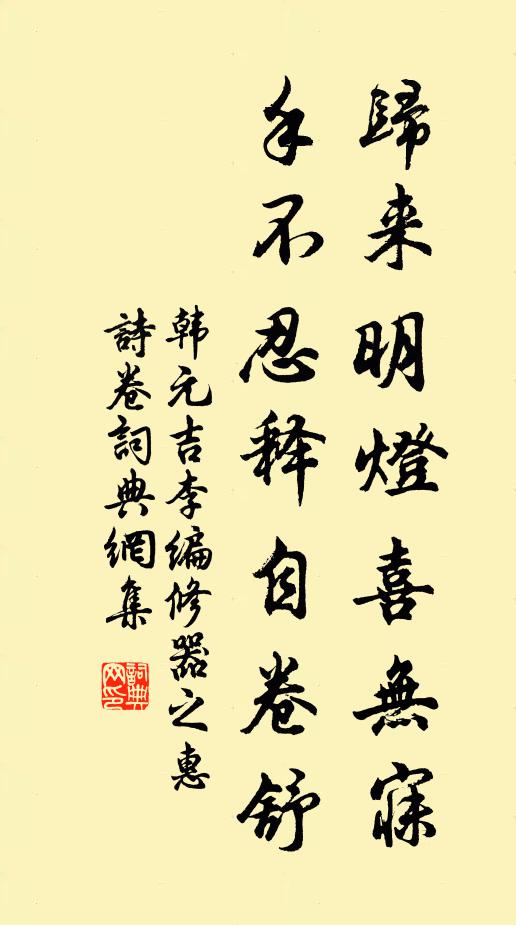 歸来明燈喜無寐
手不忍释自卷舒
韩元吉李编修器之惠
詩卷詞典網集
詞典網印